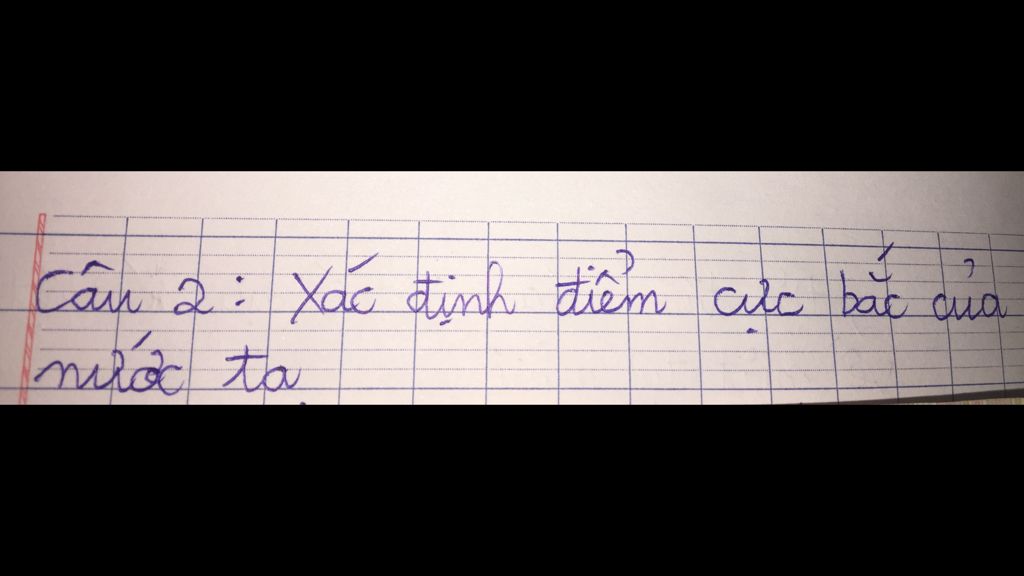 Câu 2: Xác định điểm cực bắc của
nước ta